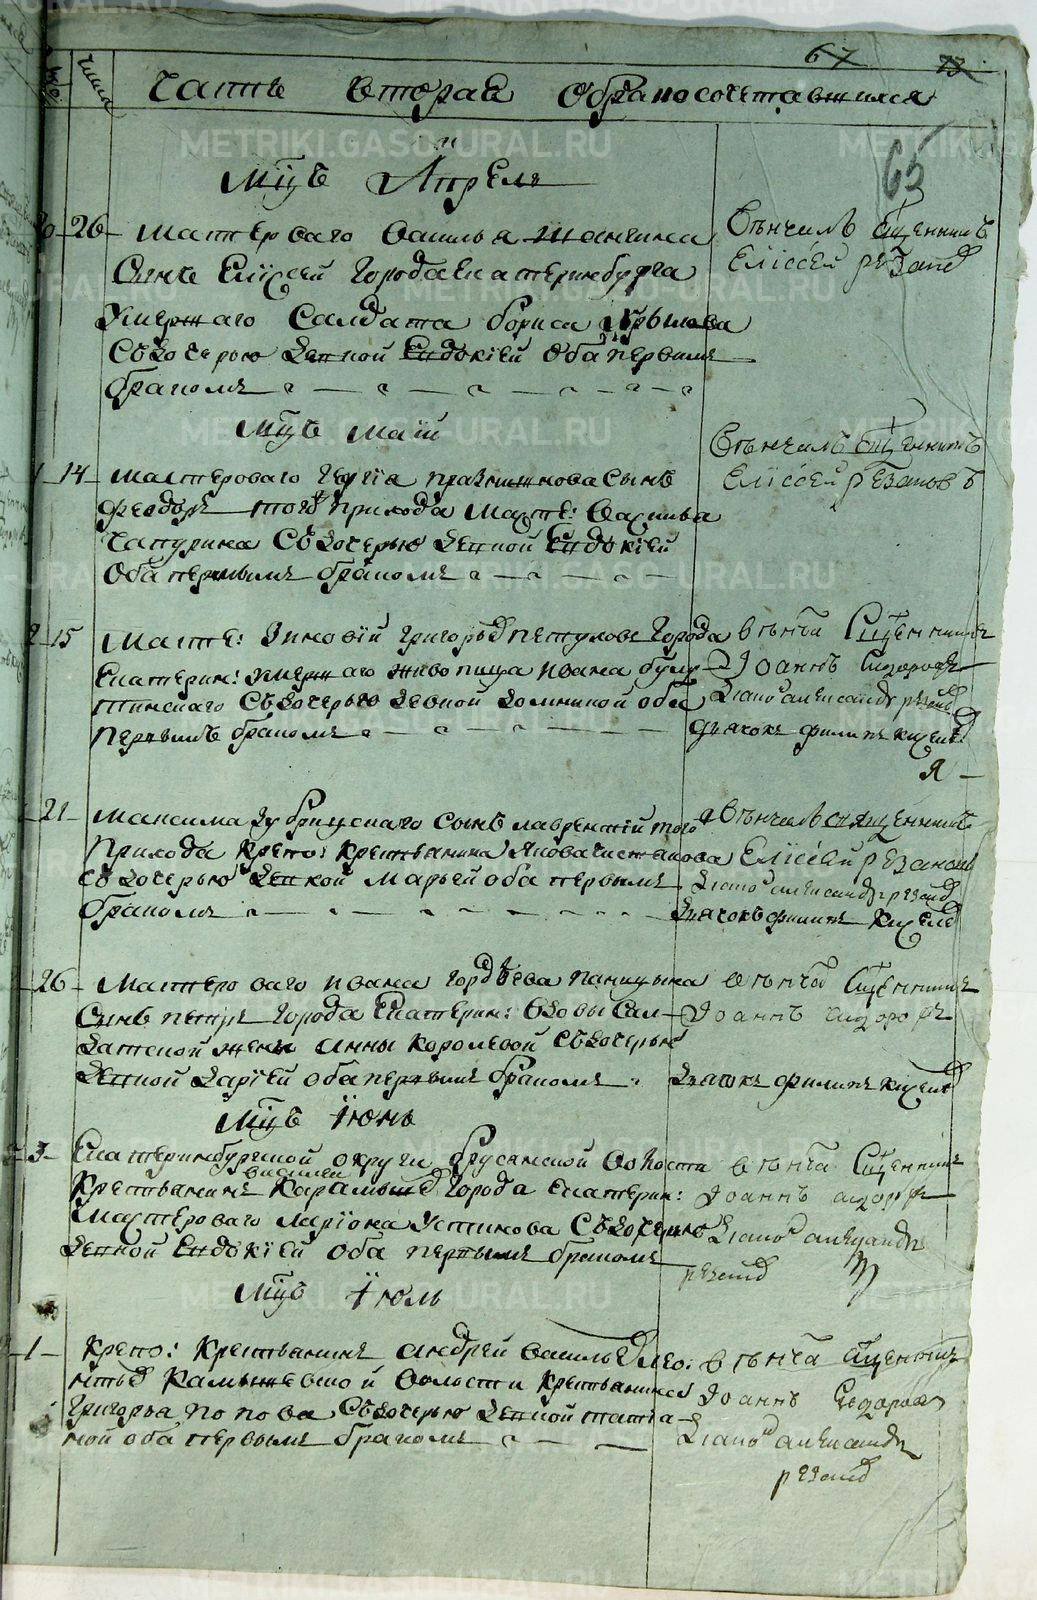 67 73
числа
Часть вторая обракосочетавшихся
65
Мцъ Апрель
26 Мастероваго Василья
Сынъ Елисей Города Екатеринбурга
Умершаго Салдата бориса
Съ дочерью девкой Евдокией оба первымъ
бракомъ
Венчилъ Сщенникъ
Елисей резанов
Мцъ маий
14 мастероваго сынъ
феодоръ того прихода масте: Василья
Чапурина Съ дочерью девкой Евдокией
Оба первымъ бракомъ
Венчилъ сщенникъ
Елисей резановъ
15 Масте: Зиновий григорьев петухов Города
Екатерин: умершаго живописца ивана
Съ дочерью девкой домникой оба
первымъ бракомъ
венча Сщенникъ
Иоаннъ Сидоровъ
Диако александръ резанов
дьячокъ филипъ киселев
21 Максима сынъ лаврентий того
прихода крепо: крестьянина Якова
съ дочерью девкой Марьей оба первымъ
бракомъ
Венчилъ священникъ
Елисей резановъ
Диако александръ резанов
Дьячокъ филипъ киселев
26 Мастероваго ивана гордеева паницына
Сынъ петръ Города Екатерин: вдовы Сал
датской жены анны королевой Съ дочерью
девкой дарией оба первымъ бракомъ
венчал Сщенникъ
Иоаннъ сидоровъ
Дьячокъ филипъ киселев
Мцъ Июнь
3 Екатеринбургской округи брусянской волости
василей
Крестьянинъ Карамышев Города Екатерин:
Мастероваго лариона устинова Съ дочерью
девкой Евдокией оба первымъ бракомъ
венча Сщенникъ
Иоаннъ сидоровъ
Диако александръ
резанов
Мцъ Июль
1 Крепо: Крестьянинъ андрей васильев лео:
нтьев Камышевской Волости крестьянина
Григорья попова Съ дочерью девкой татиа
ной оба первымъ бракомъ
венча Сщенникъ
Иоаннъ Сидоров
Диако александръ
резанов
METRIKI.GASO-URAL.RU